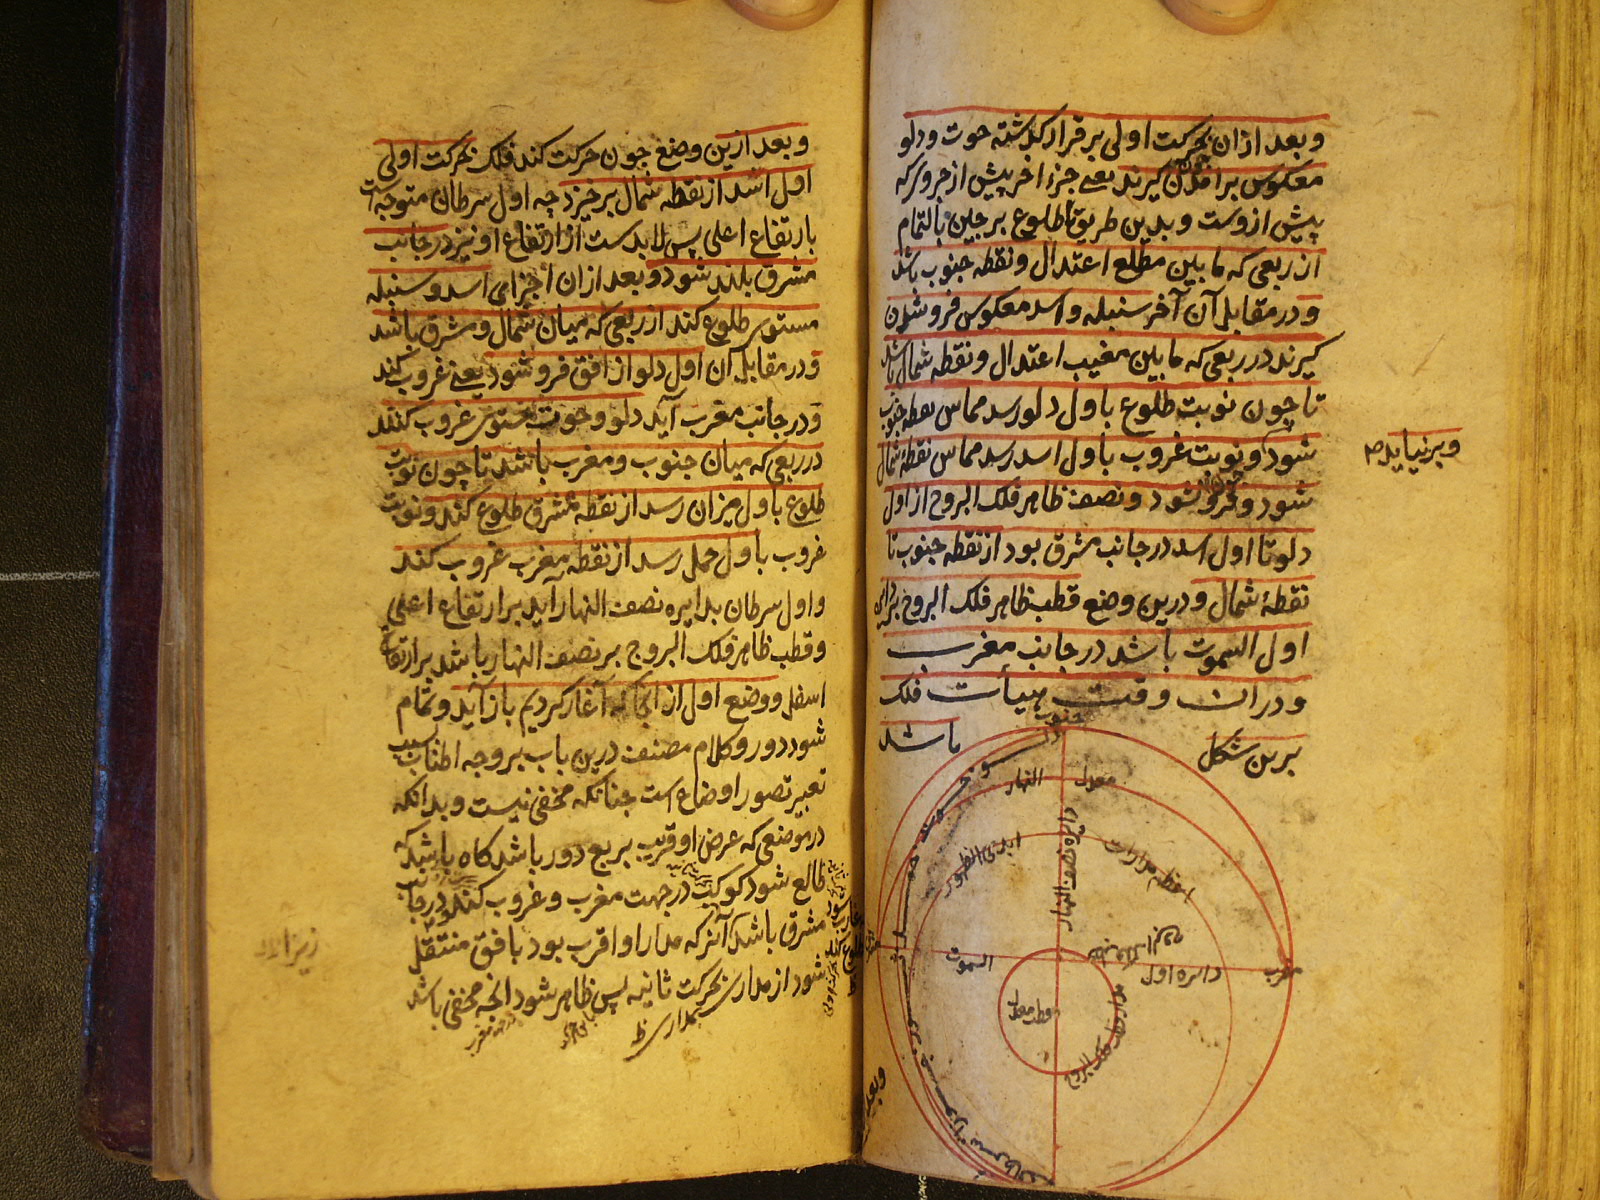 و بعد ازان بحرکت اولی بر قرار کذشته حوت و دلو
معکوس برآمدن کیرند یعنی جزء اخر پیش از جزوی که
پیش ازوست و بدین طریق تا طلوع برجین بالتمام
از ربعی که مابین مطلع اعتدال و نقطه جنوب باشد
و در مقابل آن آخر سنبله و اسد معکوس فرو شدن
کیرند در ربعی که مابین مغیب اعتدال و نقطه شمال باشد
تا چون نوبت طلوع باول دلو رسد مماس نقطه جنوب
شود و نوبت غروب باول اسد رسد مماس نقطهٔ شمال
وبرنیاید
شود و فرو نشود و نصف ظاهر فلک البروج از اول
دلو تا اول اسد در جانب مشرق بود از نقطه جنوب تا
نقطهٔ شمال و درین وضع قطب ظاهر فلک البروج بر دایرهٔ
اول السموت باشد در جانب مغرب
و دران وقت هیأت فلک
برین شکل
باشد
جنوب
معدل
النهار
دائره نصف النهار
اعظم مدارات
ابدی الظهور
قطب فلک البروج
دائره اول
السموت
مغرب
قطب معدل
مدار قطب فلک البروج
وبعد
و بعد ازین وضع چون حرکت کند فلک بحرکت اولی
اول اسد از نقطه شمال برخیزد چه اول سرطان متوجه است
بارتفاع اعلی پس لابدست از ارتفاع او نیز در جانب
مشرق بلند شود و بعد ازان اجزای اسد و سنبله
مستوی طلوع کند از ربعی که میان شمال و مشرق باشد
و در مقابل آن اول دلو از افق فرو شود یعنی غروب کند
و در جانب مغرب آید دلو و حوت مستوی غروب کنند
در ربعی که میان جنوب و مغرب باشد تا چون نوبت
طلوع باول میزان رسد از نقطه مشرق طلوع کند و نوبت
غروب باول حمل رسد از نقطه مغرب غروب کند
و اول سرطان بدایره نصف النهار آید بر ارتفاع اعلی
و قطب ظاهر فلک البروج بر نصف النهار باشد بر ارتفاع
اسفل و وضع اول از آنجا که آغاز کردیم باز آید و تمام
شود دور و کلام مصنف درین باب بر وجه اطناب
تعبیر تصور اوضاع است چنانکه مخفی نیست و بدانکه
در موضعی که عرض او قریب بربع دور باشد کاه باشد که
طالع شود کوکب در جهت مغرب و غروب کند و در جانب
مشرق باشد آنرا که مدار او اقرب بود بافق منتقل
شود از مداری بحرکت ثانیه پس ظاهر شود آنچه مخفی باشد